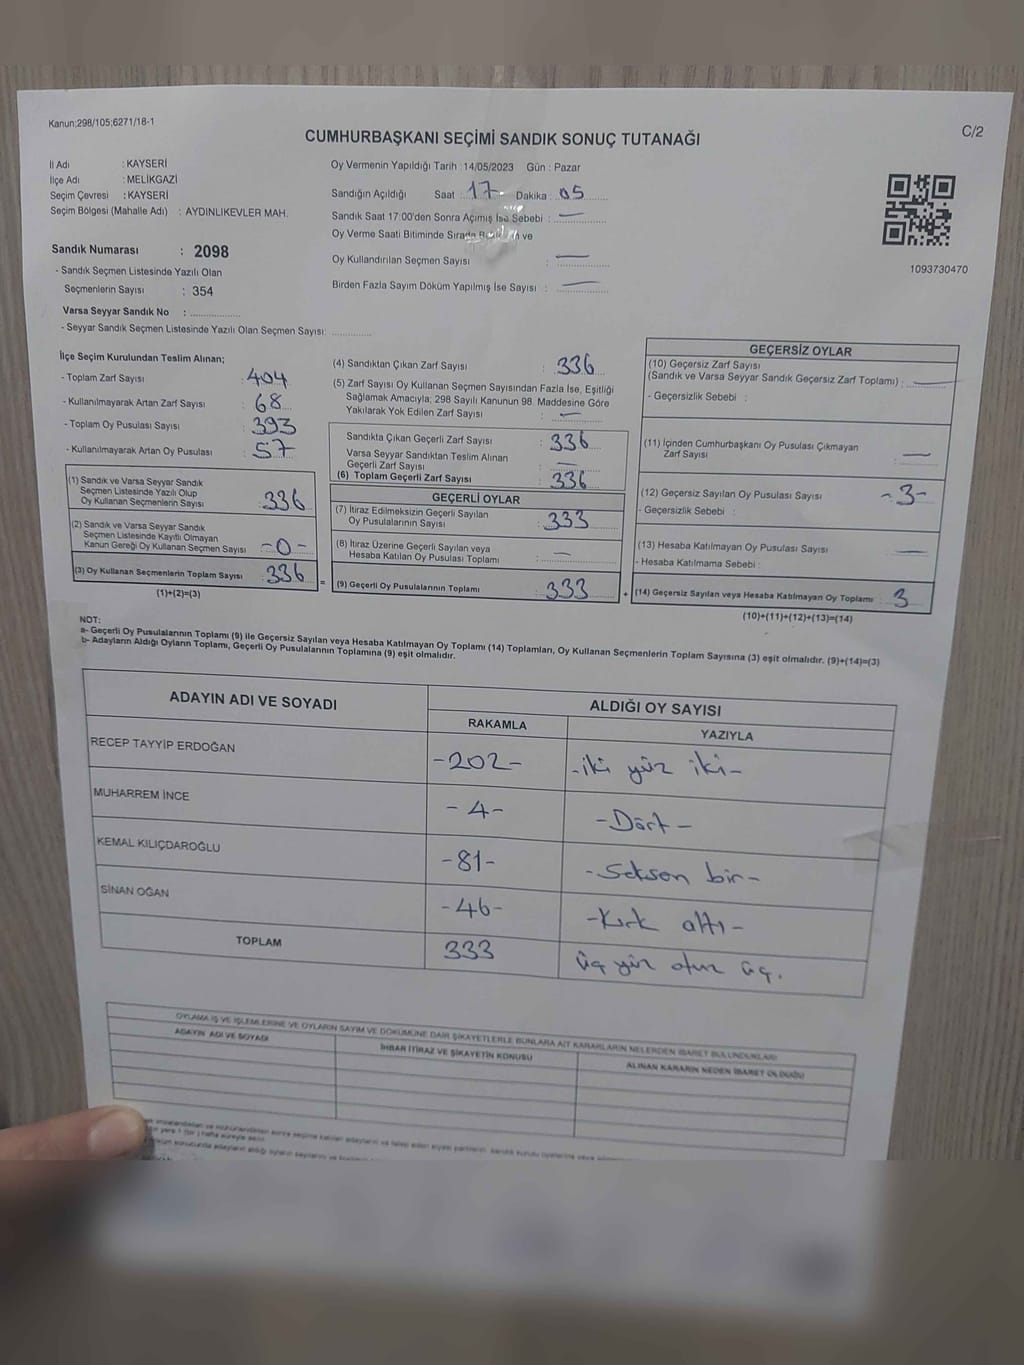 Kanun:298/105;6271/18-1
C/2
CUMHURBAŞKANI SEÇİMİ SANDIK SONUÇ TUTANAĞI
İl Adı : KAYSERİ
İlçe Adı : MELİKGAZİ
Seçim Çevresi : KAYSERİ
Seçim Bölgesi (Mahalle Adı) : AYDINLIKEVLER MAH.
Sandık Numarası : 2098
- Sandık Seçmen Listesinde Yazılı Olan
Seçmenlerin Sayısı : 354
Varsa Seyyar Sandık No :
- Seyyar Sandık Seçmen Listesinde Yazılı Olan Seçmen Sayısı:
Oy Vermenin Yapıldığı Tarih :14/05/2023 Gün : Pazar
Sandığın Açıldığı Saat : 17 Dakika : 05
Sandık Saat 17:00'den Sonra Açımış İse Sebebi : —
Oy Verme Saati Bitiminde Sırada ve
Oy Kullandırılan Seçmen Sayısı : —
Birden Fazla Sayım Döküm Yapılmış İse Sayısı : —
1093730470
İlçe Seçim Kurulundan Teslim Alınan;
- Toplam Zarf Sayısı : 404
- Kullanılmayarak Artan Zarf Sayısı : 68
- Toplam Oy Pusulası Sayısı : 393
- Kullanılmayarak Artan Oy Pusulası : 57
(1) Sandık ve Varsa Seyyar Sandık
Seçmen Listesinde Yazılı Olup
Oy Kullanan Seçmenlerin Sayısı : 336
(2) Sandık ve Varsa Seyyar Sandık
Seçmen Listesinde Kayıtlı Olmayan
Kanun Gereği Oy Kullanan Seçmen Sayısı -0-
(3) Oy Kullanan Seçmenlerin Toplam Sayısı : 336 =
(1)+(2)=(3)
(4) Sandıktan Çıkan Zarf Sayısı : 336
(5) Zarf Sayısı Oy Kullanan Seçmen Sayısından Fazla İse, Eşitliği
Sağlamak Amacıyla; 298 Sayılı Kanunun 98. Maddesine Göre
Yakılarak Yok Edilen Zarf Sayısı : —
Sandıkta Çıkan Geçerli Zarf Sayısı : 336
Varsa Seyyar Sandıktan Teslim Alınan
Geçerli Zarf Sayısı : —
(6) Toplam Geçerli Zarf Sayısı : 336
GEÇERLİ OYLAR
(7) İtiraz Edilmeksizin Geçerli Sayılan
Oy Pusulalarının Sayısı : 333
(8) İtiraz Üzerine Geçerli Sayılan veya
Hesaba Katılan Oy Pusulası Toplamı : —
(9) Geçerli Oy Pusulalarının Toplamı : 333 +
GEÇERSİZ OYLAR
(10) Geçersiz Zarf Sayısı
(Sandık ve Varsa Seyyar Sandık Geçersiz Zarf Toplamı) : —
- Geçersizlik Sebebi :
(11) İçinden Cumhurbaşkanı Oy Pusulası Çıkmayan
Zarf Sayısı : —
(12) Geçersiz Sayılan Oy Pusulası Sayısı : -3-
- Geçersizlik Sebebi :
(13) Hesaba Katılmayan Oy Pusulası Sayısı : —
- Hesaba Katılmama Sebebi :
(14) Geçersiz Sayılan veya Hesaba Katılmayan Oy Toplamı : 3
(10)+(11)+(12)+(13)=(14)
NOT:
a- Geçerli Oy Pusulalarının Toplamı (9) ile Geçersiz Sayılan veya Hesaba Katılmayan Oy Toplamı (14) Toplamları, Oy Kullanan Seçmenlerin Toplam Sayısına (3) eşit olmalıdır. (9)+(14)=(3)
b- Adayların Aldığı Oyların Toplamı, Geçerli Oy Pusulalarının Toplamına (9) eşit olmalıdır.
ADAYIN ADI VE SOYADI
ALDIĞI OY SAYISI
RAKAMLA YAZIYLA
RECEP TAYYİP ERDOĞAN -202- -iki yüz iki-
MUHARREM İNCE -4- -Dört-
KEMAL KILIÇDAROĞLU -81- -Seksen bir-
SİNAN OĞAN -46- -Kırk altı-
TOPLAM 333 üç yüz otuz üç.
OYLAMA İŞ VE İŞLEMLERİNE VE OYLARIN SAYIM VE DÖKÜMÜNE DAİR ŞİKAYETLERLE BUNLARA AİT KARARLARIN NELERDEN İBARET BULUNDUKLARI
ADAYIN ADI VE SOYADI
İHBAR İTİRAZ VE ŞİKAYETİN KONUSU
ALINAN KARARIN NEDEN İBARET OLDUĞU